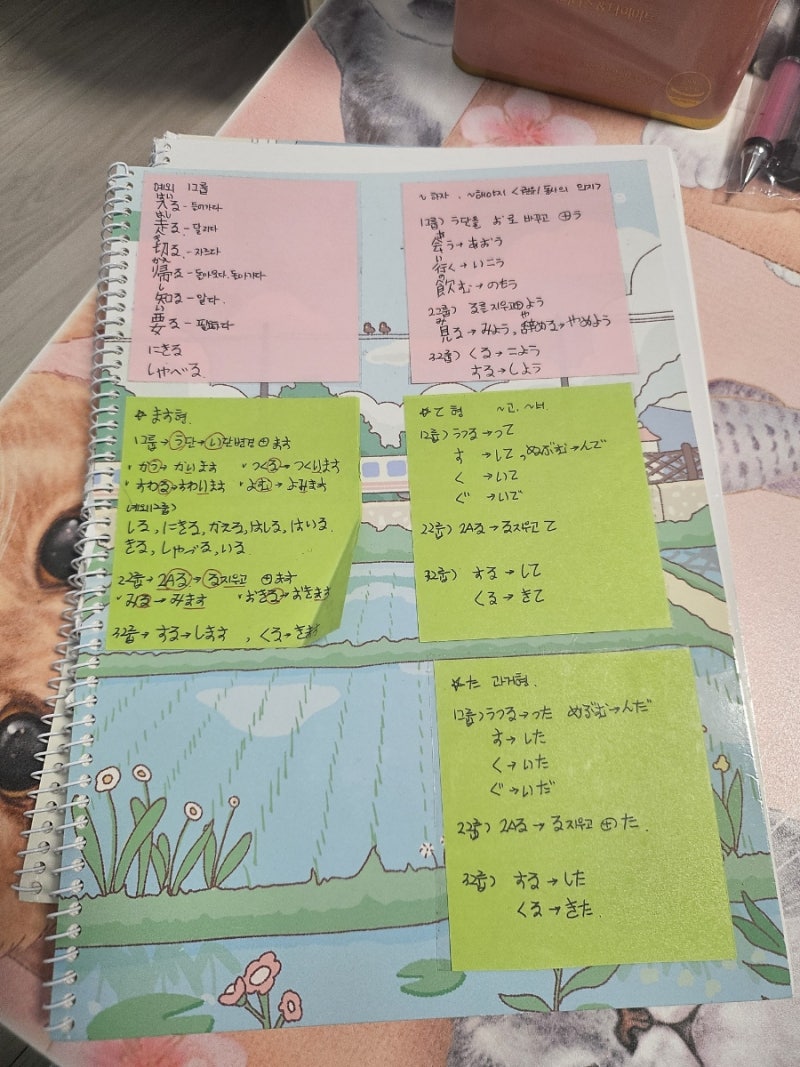 예외 1그룹
はい
入る - 들어가다
はし
走る - 달리다
き
切る - 자르다
かえ
帰る - 돌아오다, 돌아가다
し
知る - 알다.
い
要る - 필요하다
にぎる
しゃべる
~ 하자 . ~해야지 <권유/동사의 의지>
1그룹) う단을 お로 바꾸고 ⊕う
あ
会う→あおう
い
行く→いこう
の
飲む→のもう
2그룹) る를 지우고⊕よう
み や
見る→みよう, 辞める→やめよう
3그룹) くる→こよう
する→しよう
☆ ます형.
1그룹→う단→い단변경 ⊕ます
• かう→かいます • つくる→つくります
• すわる→すわります • よむ→よみます
예외1그룹)
しる, にぎる, かえる, はしる, はいる.
きる, しゃべる, いる.
2그룹→2Aる→る지우고 ⊕ます
• みる→みます • おきる→おきます
3그룹→ する→します , くる→きます
☆て형 ~고, ~서.
1그룹) うつる→って
す→して, ぬぶむ→んで
く→いて
ぐ→いで
2그룹) 2Aる→る지우고 て
3그룹) する→して
くる→きて
☆た 과거형.
1그룹)うつる→った ぬぶむ→んだ
す→した
く→いた
ぐ→いだ
2그룹) 2Aる→る지우고 ⊕た.
3그룹) する→した
くる→きた.